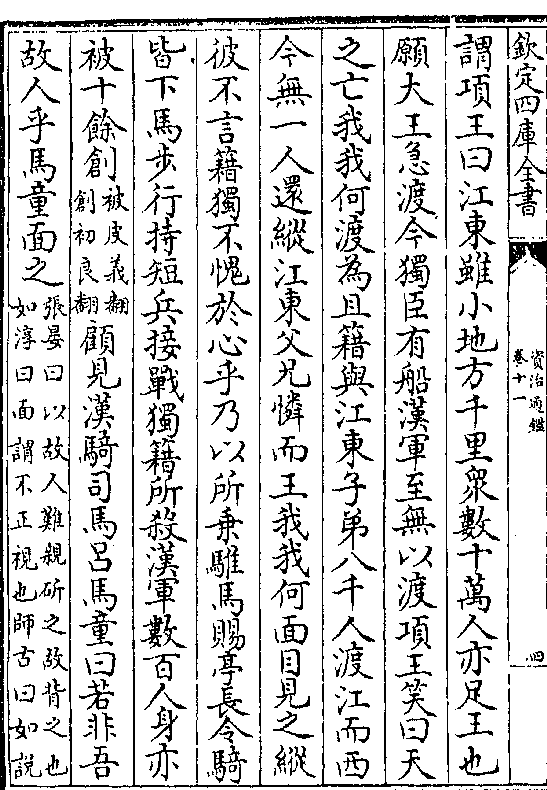 欽定四庫全書
資治通鑑
卷十一
四
謂項王曰江東雖小地方千里衆數十萬人亦足王也
願大王急渡今獨臣有船漢軍至無以渡項王笑曰天
之亡我我何渡為且籍與江東子弟八千人渡江而西
今無一人還縱江東父兄憐而王我我何面目見之縱
彼不言籍獨不愧於心乎乃以所乗騅馬賜亭長令騎
皆下馬步行持短兵接戰獨籍所殺漢軍數百人身亦
被十餘創被皮義翻創初良翻顧見漢騎司馬呂馬童曰若非吾
故人乎馬童面之張晏曰以故人難親斫之故背之也如淳曰面謂不正視也師古曰如說